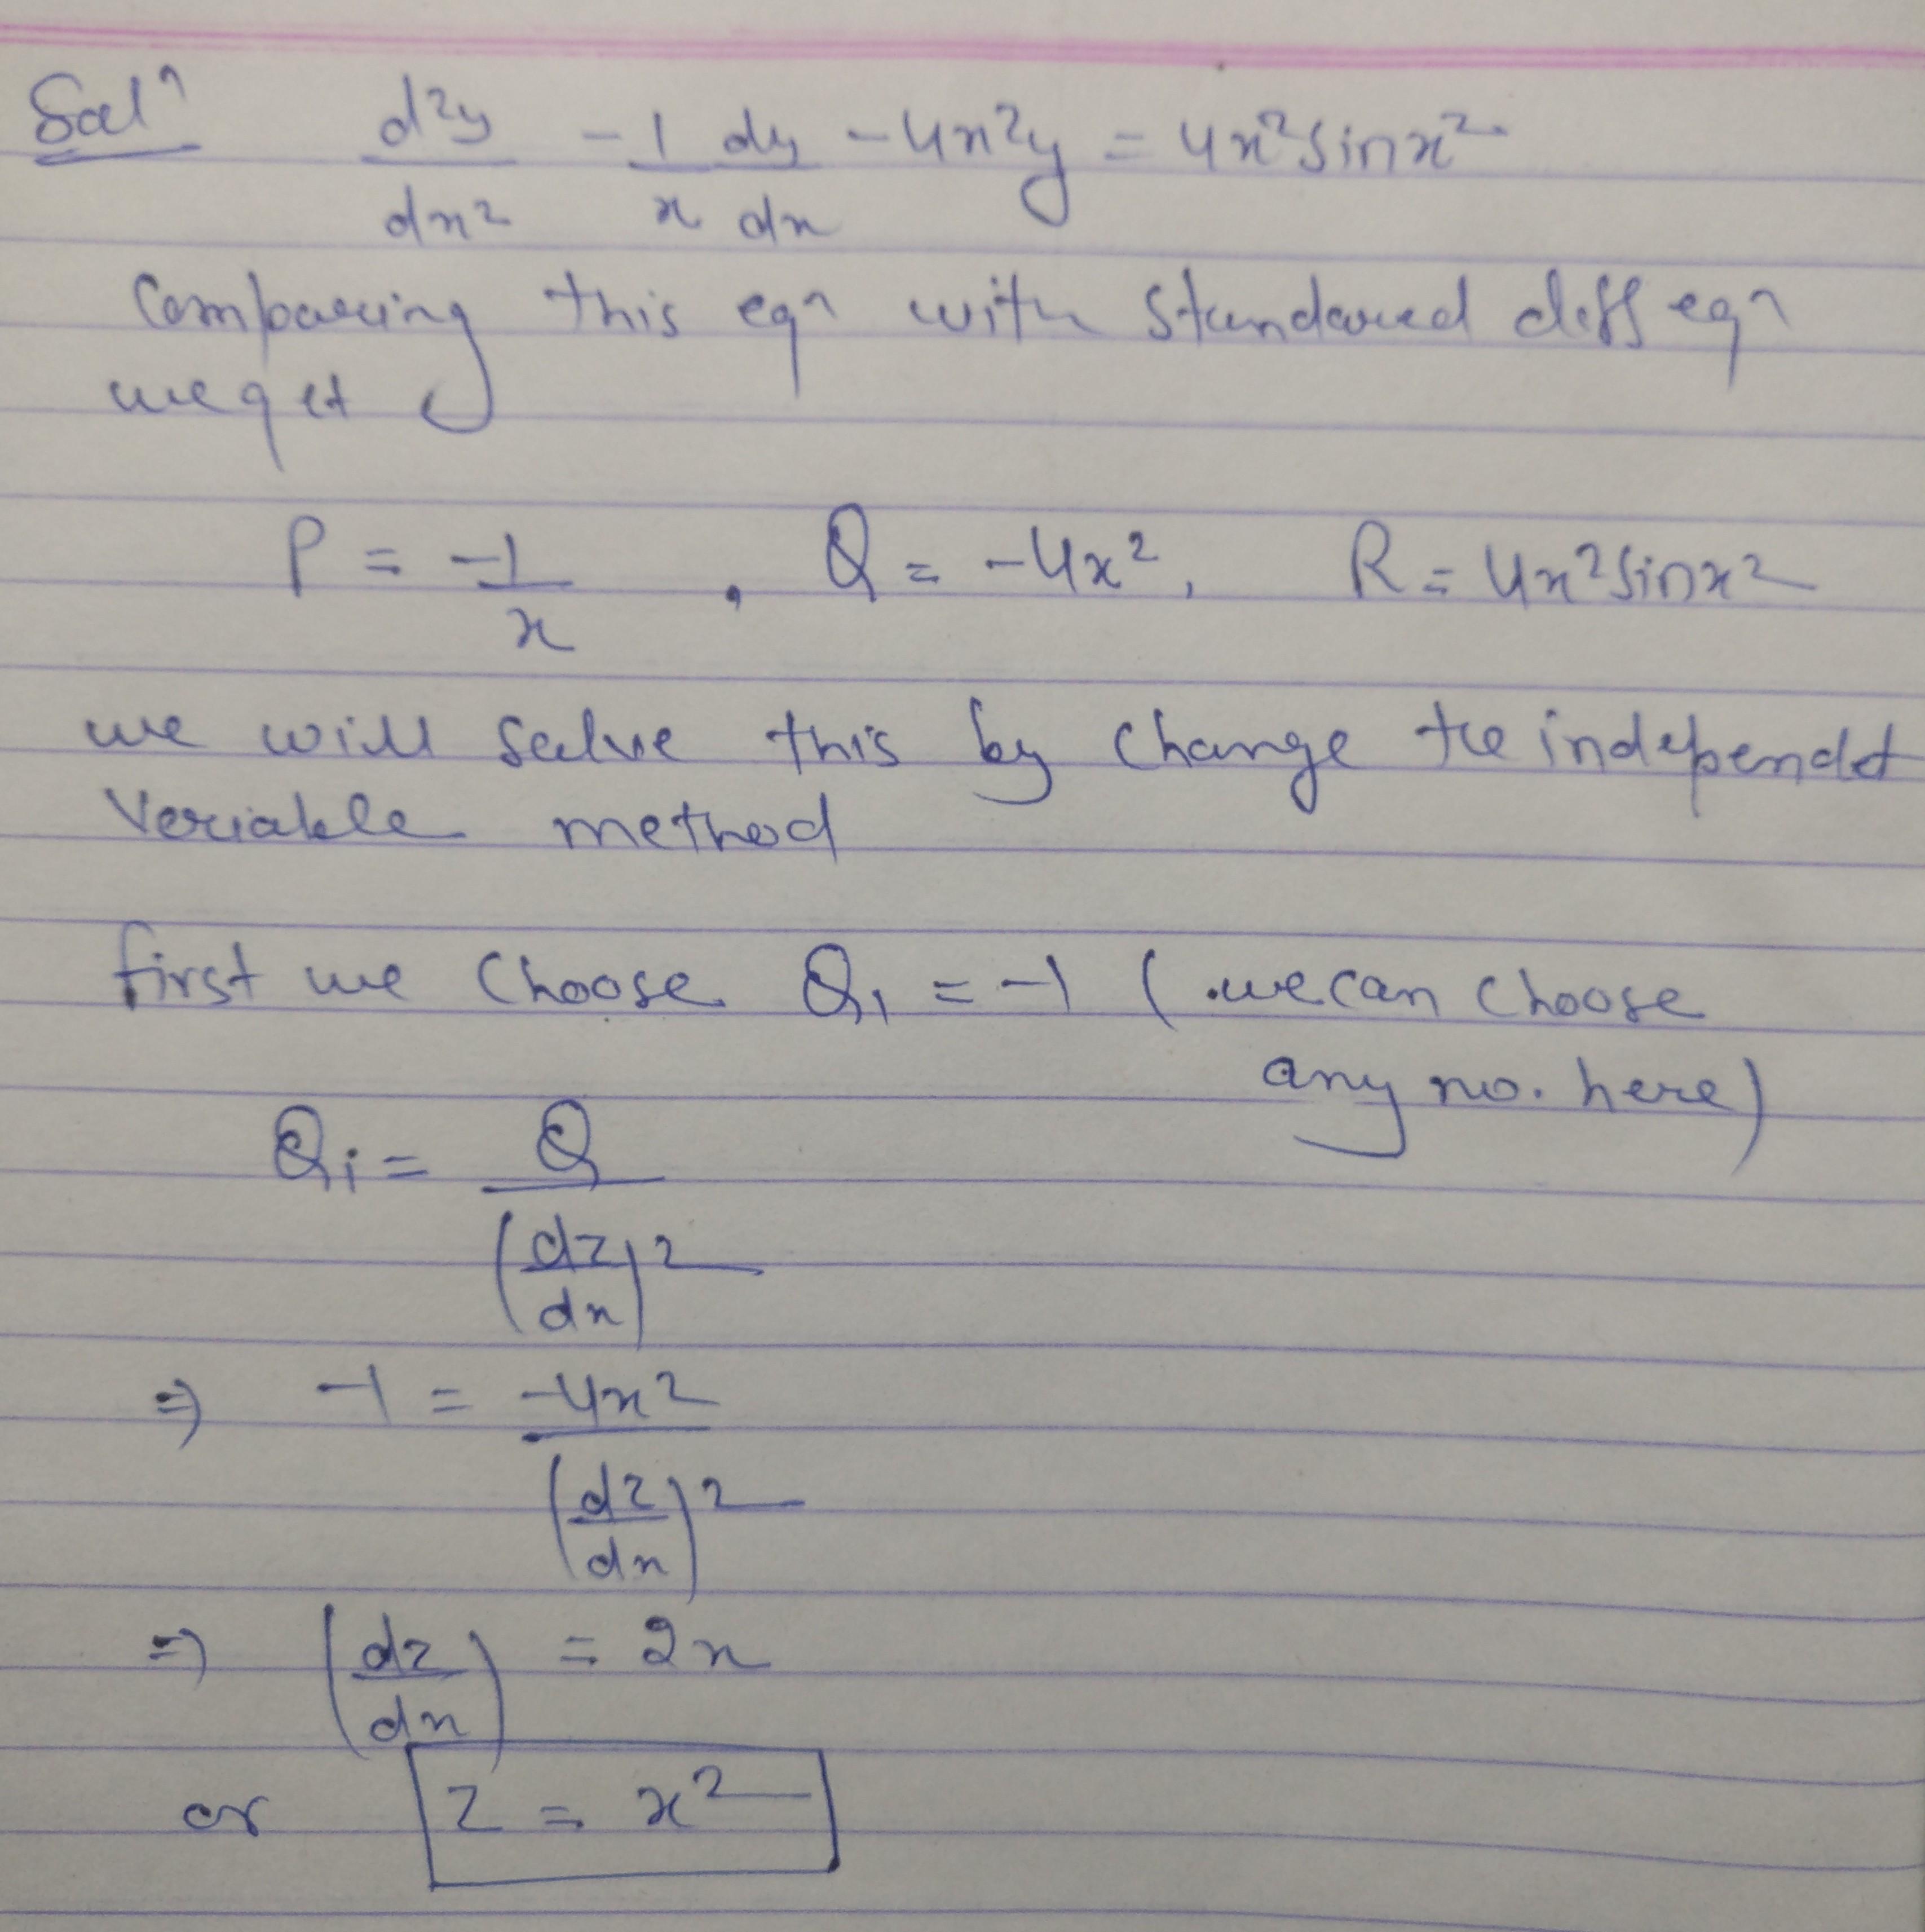 Solⁿ d²y/dx² - 1/x dy/dx - 4x²y = 4x² sinx²
Comparing this eqn with standared diff eqn
we get
P = -1/x , Q = -4x², R = 4x² sinx²
we will solve this by change the independet
Veriable method
first we choose Q₁ = -1 (we can choose
any no. here)
Q₁ = Q/(dz/dx)²
⇒ -1 = -4x²/(dz/dx)²
⇒ (dz/dx) = 2x
or z = x²